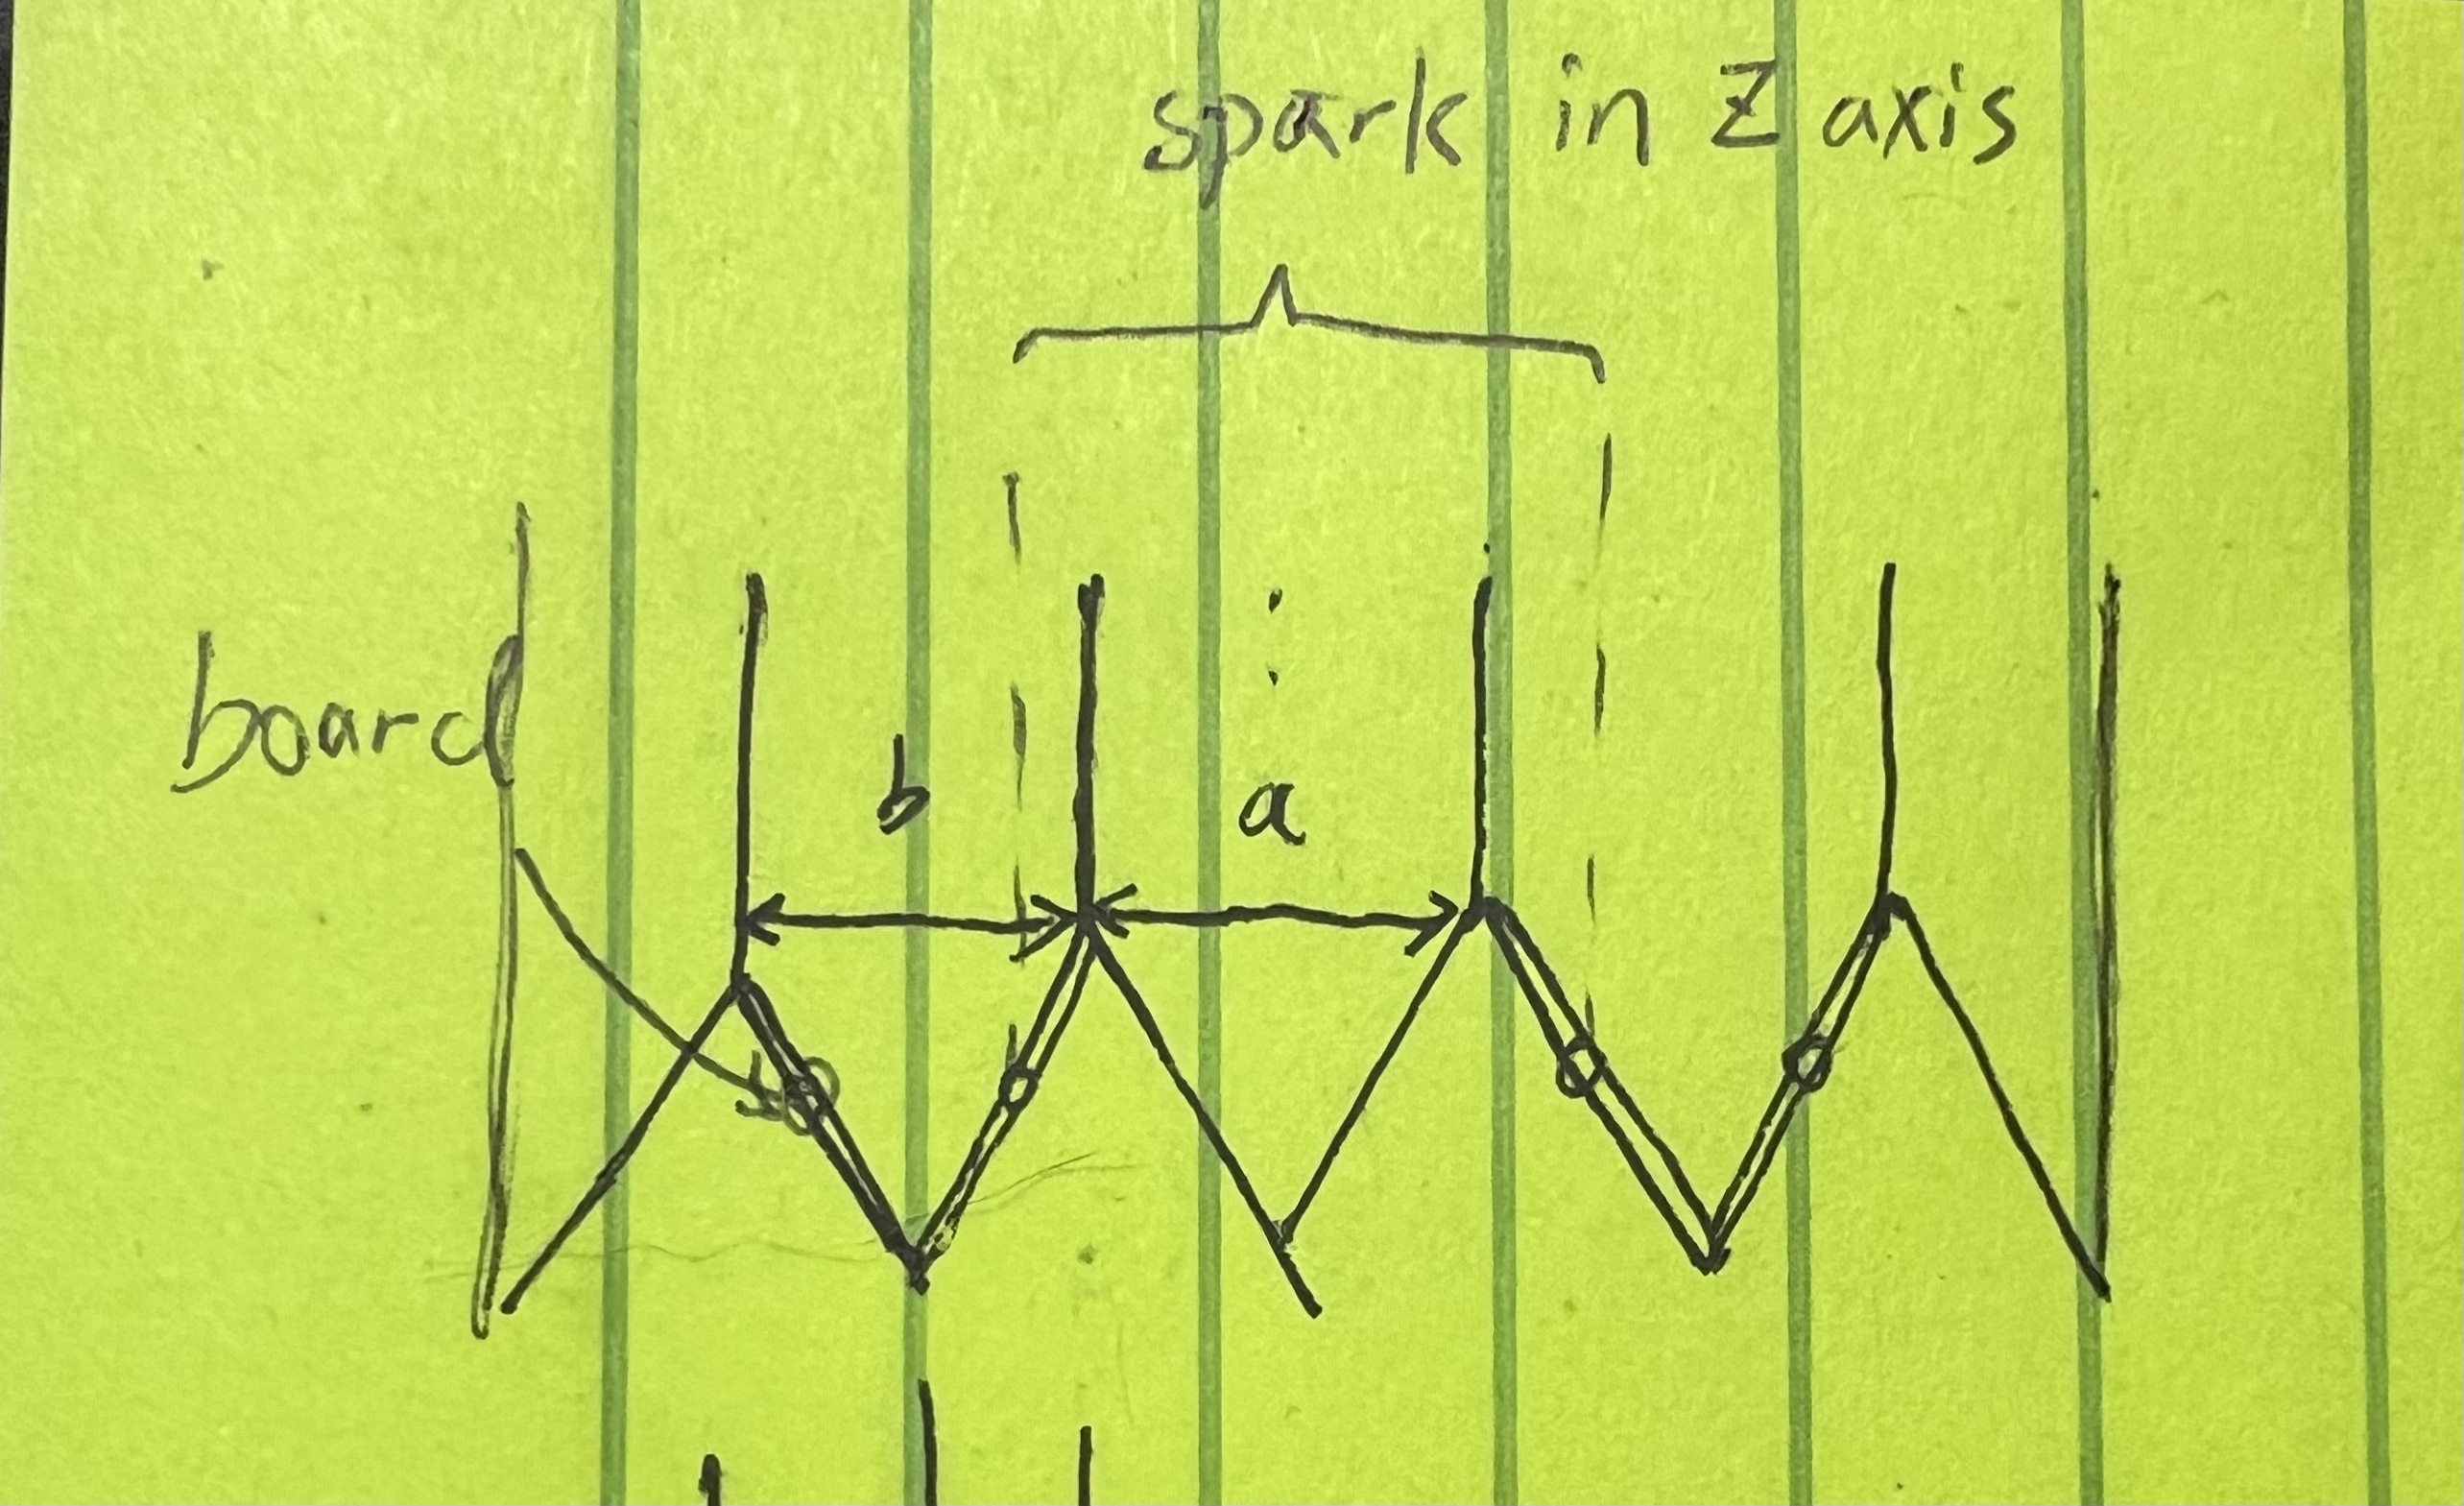 spark in Z axis
board
b
a